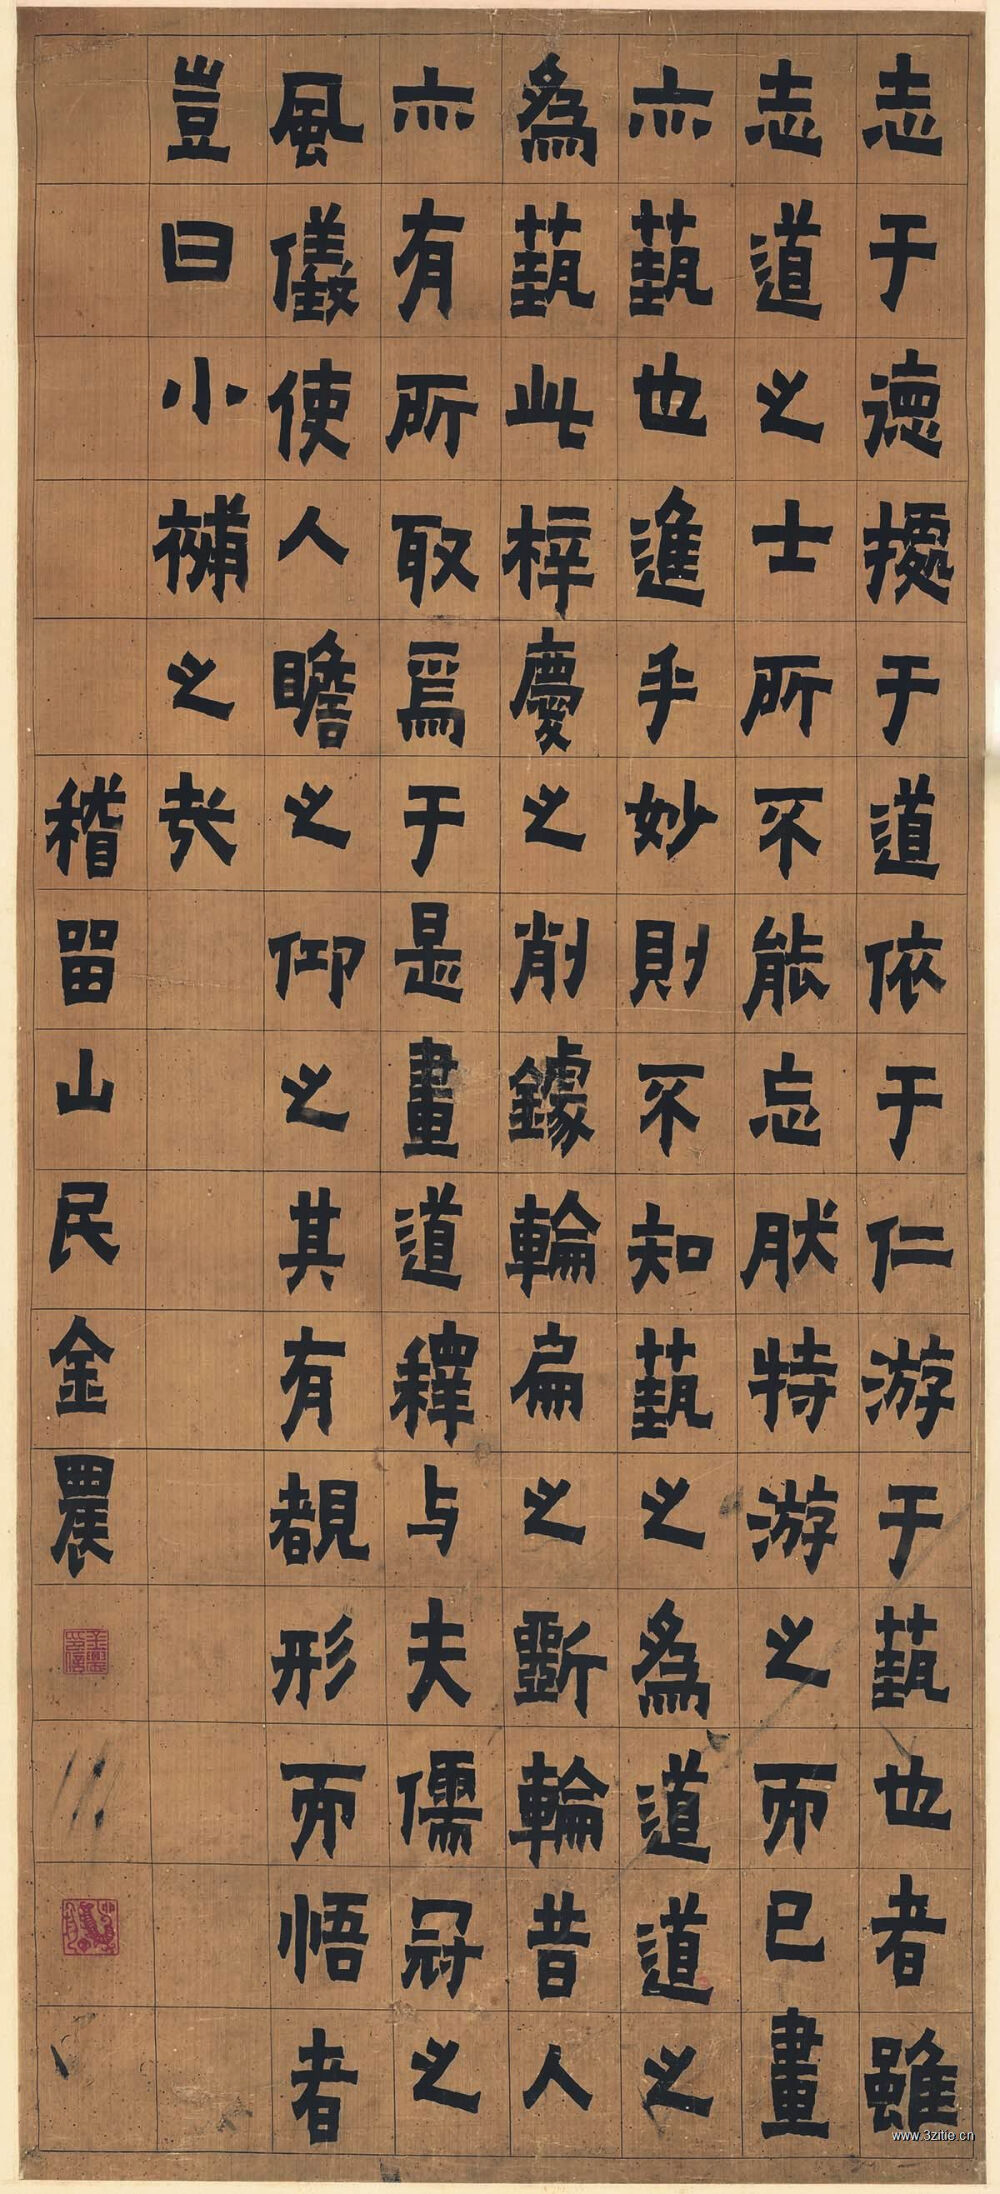 志于德據于道依于仁游于藝也者雖
志道之士所不能忘肰特游之而已畫
亦藝也進乎妙則不知藝之爲道道之
爲藝此梓慶之削鐻輪扁之斵輪昔人
亦有所取焉于是畫道釋与夫儒冠之
風儀使人瞻之仰之其有覩形而悟者
豈曰小補之㢤
稽留山民金農
www.3zitie.cn